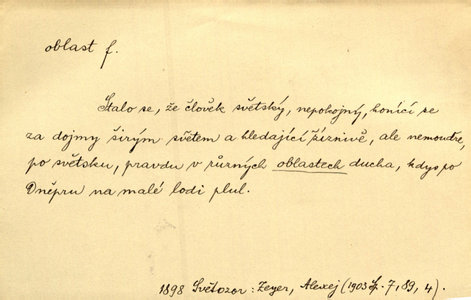 oblast f.
Stalo se, že člověk světský, nepokojný, honící se
za dojmy širým světem a hledající žíznivě, ale nemoudře,
po světsku, pravdu v různých oblastech ducha, kdys po
Dněpru na malé lodi plul.
1898 Světozor: Zeyer, Alexej (1903 Sp. 7, 89, 4).